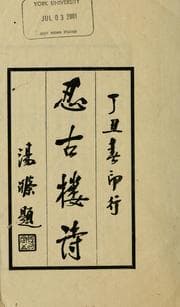 YORK UNIVERSITY
JUL 03 2001
丁丑春印行
忍古樓詩
湯滌題